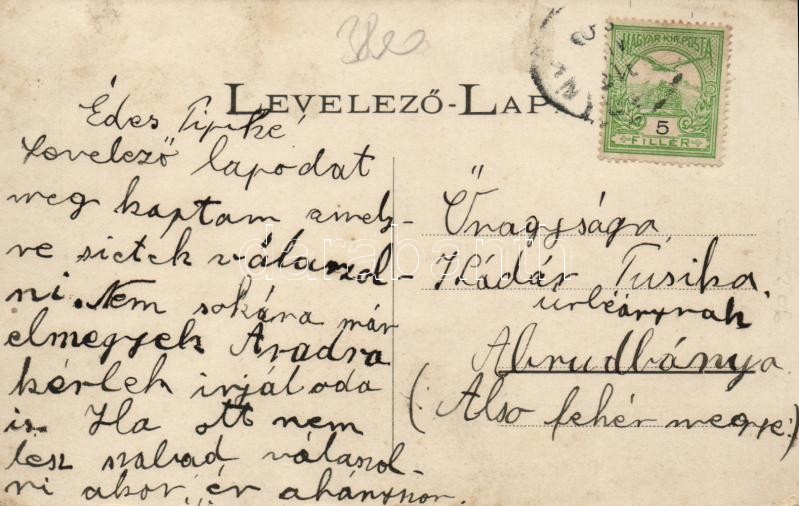 3820
LEVELEZŐ-LAP.
MAGYAR KIR. POSTA
5
FILLÉR
Édes Tipiké
Levelező lapodat
meg kaptam amely-
re sietek válaszol-
ni. Nem sokára már
elmegyek Aradra
kérlek irjál oda
is. Ha ott nem
lesz szabad válaszol-
ni akor én ahányszor.
Őnagysága
Kádár Tusika
úrleánynak
Abrudbánya
(Also fehér megye)
darabanth